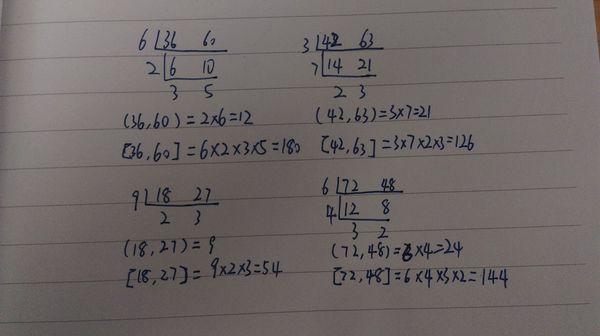 6 36 60
2 6 10
3 5
(36,60)=2×6=12
[36,60]=6×2×3×5=180
3 42 63
7 14 21
2 3
(42,63)=3×7=21
[42,63]=3×7×2×3=126
9 18 27
2 3
(18,27)=9
[18,27]=9×2×3=54
6 72 48
4 12 8
3 2
(72,48)=6×4=24
[72,48]=6×4×3×2=144